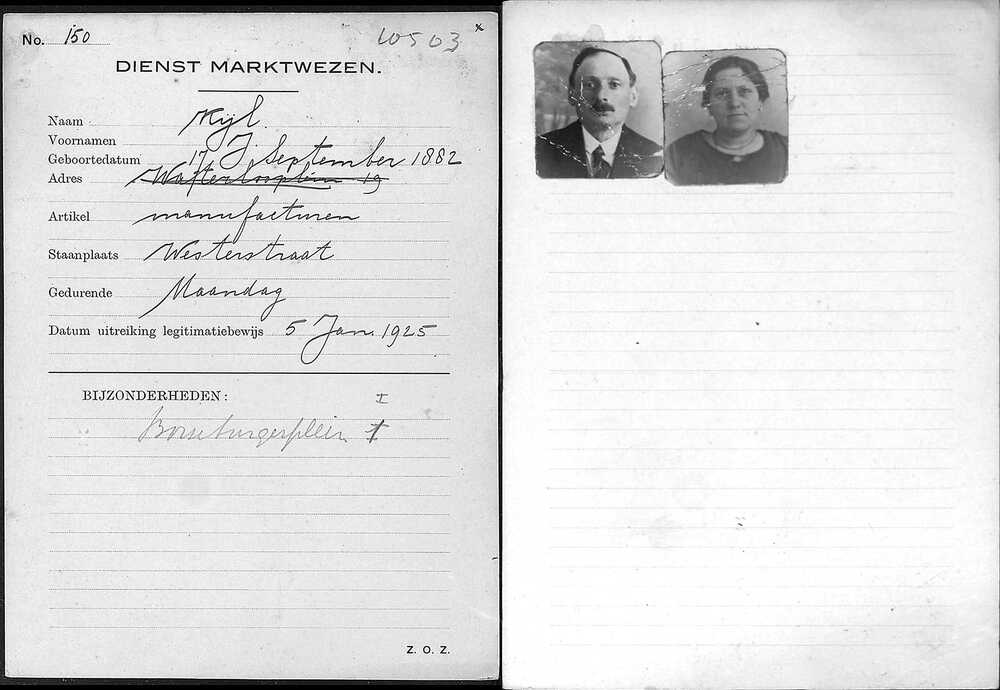 No. 150 10503 x
DIENST MARKTWEZEN.
Naam Kijl
Voornamen J.
Geboortedatum 17 September 1882
Adres Waterlooplein 19
Artikel manufacturen
Staanplaats Westerstraat
Gedurende Maandag
Datum uitreiking legitimatiebewijs 5 Jan. 1925
BIJZONDERHEDEN: I
Borseburgerplein
Z. O. Z.